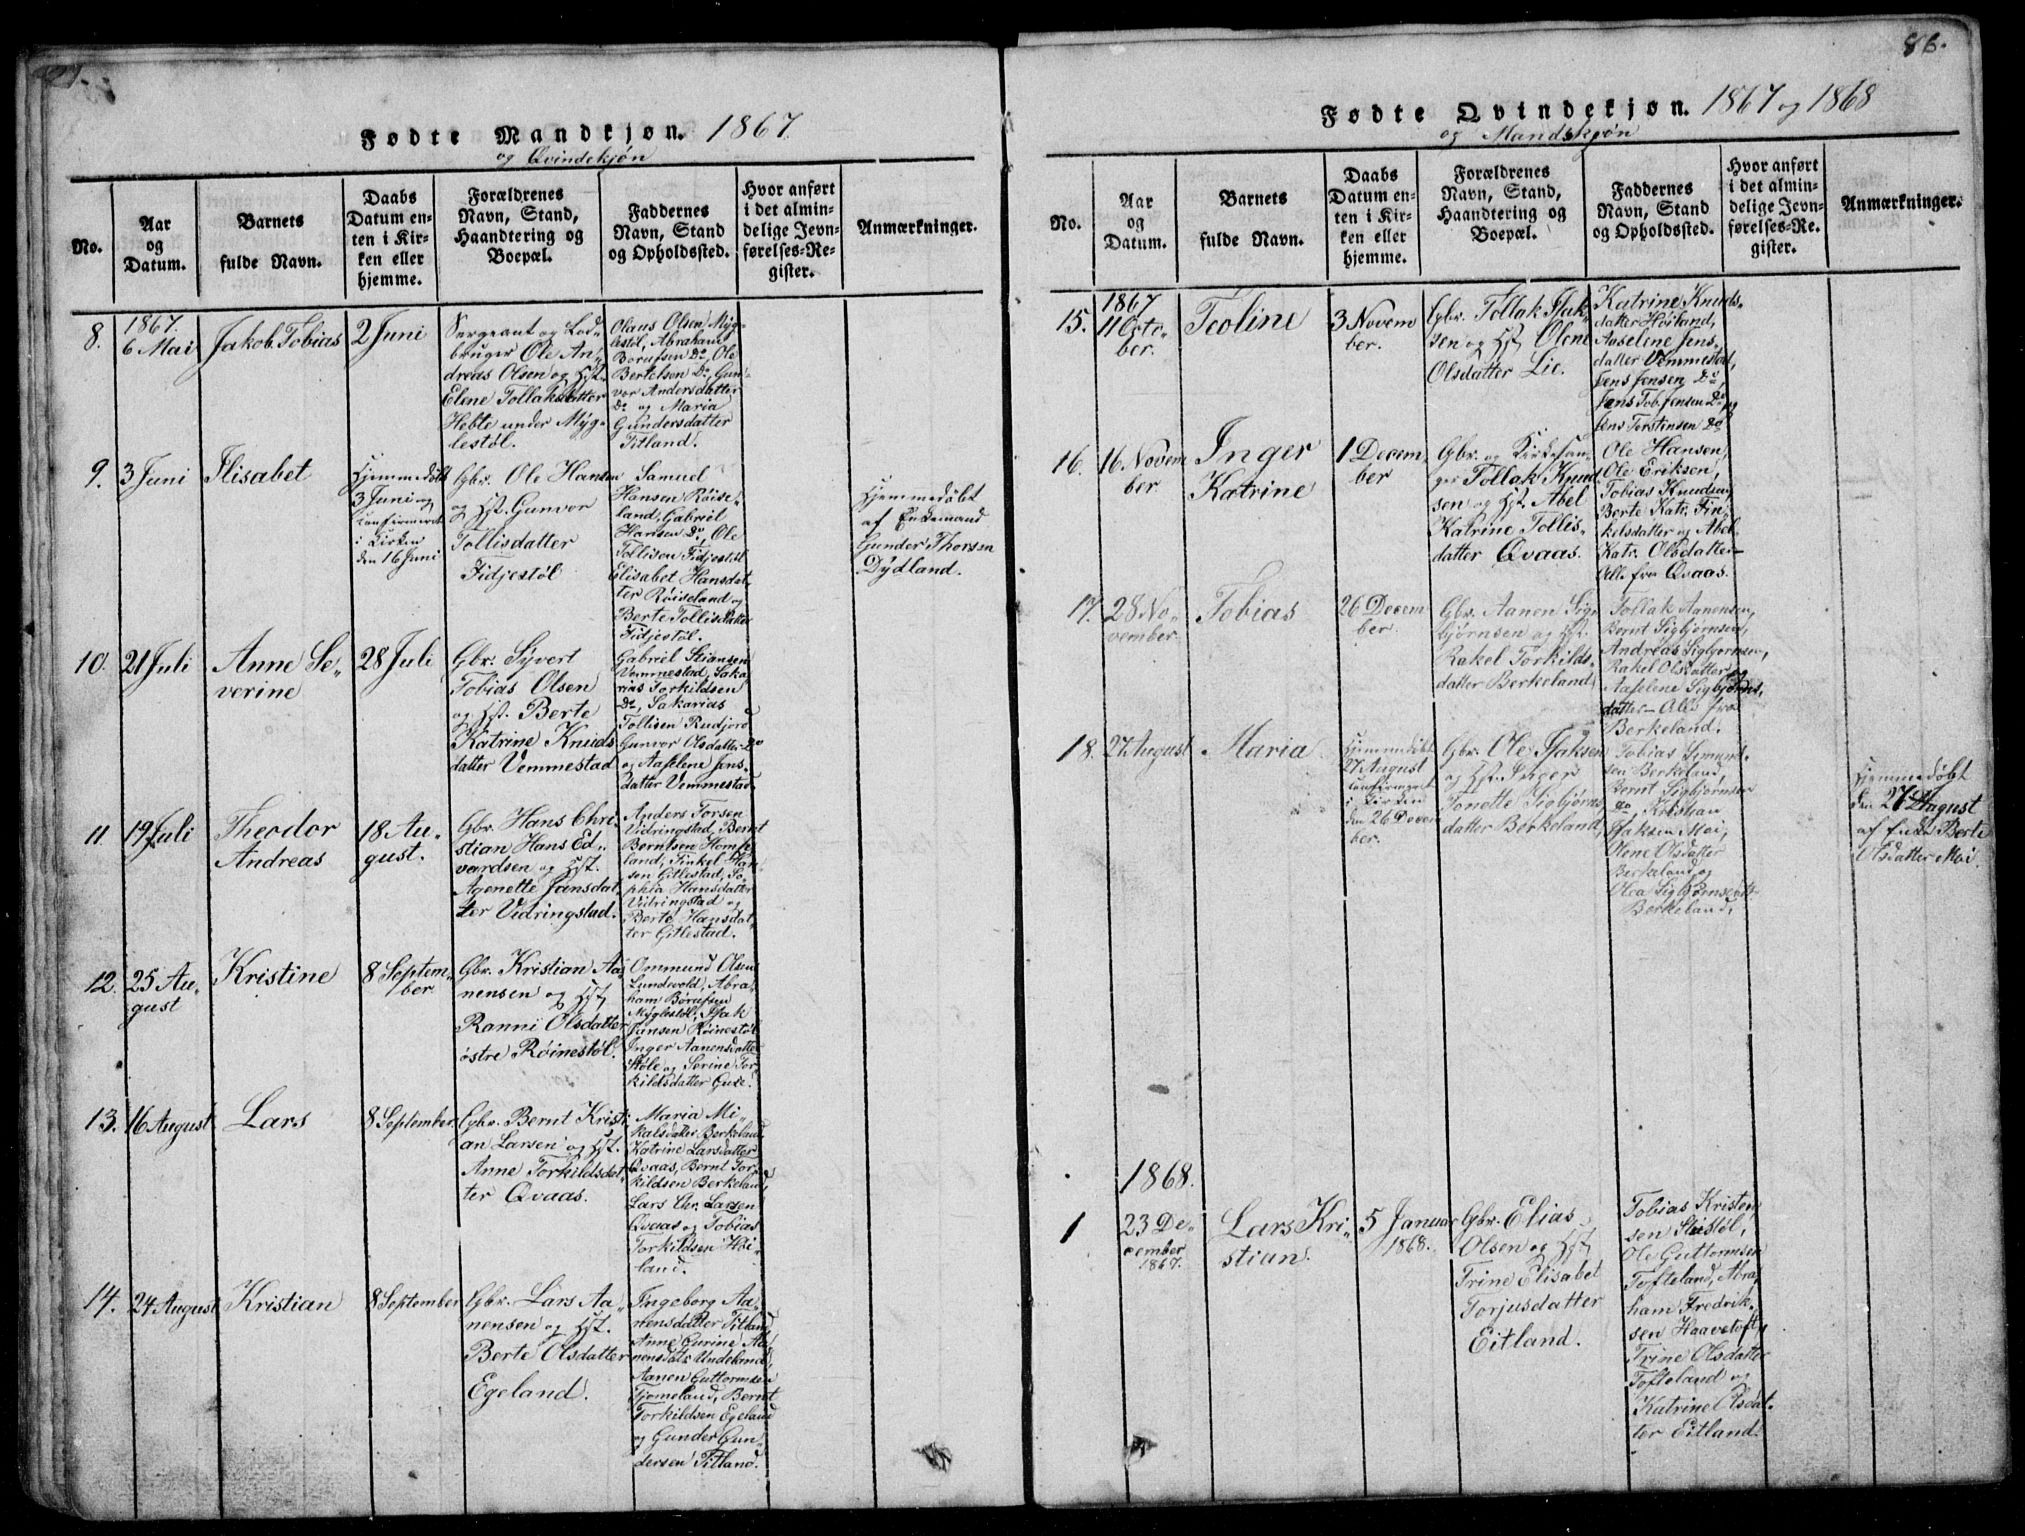 Fødte Mandkjøn. 1867.
og Qvindekjøn
No.
Aar
og
Datum.
Barnets
fulde Navn.
Daabs
Datum en-
ten i Kir-
ken eller
hjemme.
Forældrenes
Navn, Stand,
Haandtering og
Boepæl.
Faddernes
Navn, Stand
og Opholdssted.
Hvor anført
i det almin-
delige Jevn-
førelses-Re-
gister.
Anmærkninger.
8.
1867.
6 Mai
Jakob Tobias
2 Juni
Sergeant og Lod-
bruger Ole An-
dreas Olsen og Hst.
Elene Tollaksdatter
Heble under Myg-
lestøl.
Olaus Olsen Myg-
lestøl, Abraham
Børufsen Do, Ole
Bertelsen Do, Gun-
vor Andersdatter
Do og Maria
Gundersdatter
Titland.
9.
3 Juni
Elisabet
Hjemmedøbt
3 Juni og
confirmeret
i Kirken
den 16 Juni
Gbr. Ole Hansen
og Hst. Gunvor
Tollisdatter
Fidjestøl
Samuel
Hansen Røise-
land, Gabriel
Hansen Do, Ole
Tollisen Fidjestøl
Elisabet Hansdat-
ter Røiseland og
Berte Tollisdatter
Fidjestøl.
Hjemmedøbt
af Enkemand
Gunder Thorsen
Dydland.
10.
21 Juli
Anne Se-
verine
28 Juli
Gbr. Syvert
Tobias Olsen
og Hst. Berte
Katrine Knuds
datter Vemmestad
Gabriel Stiansen
Vemmestad, Saka-
rias Torkildsen
Do, Sakarias
Tollisen Rudjord
Gunvor Olsdatter Do
og Aaselene Jens-
datter Vemmestad.
11
19 Juli
Theodor
Andreas
18 Au-
gust.
Gbr. Hans Chri-
stian Hans Ed-
vardsen og Hst.
Agenette Jansdat-
ter Vidringstad.
Anders Torsen
Vidringstad, Bernt
Berntsen Homse-
land, Finkel Han-
sen Gitlestad, So-
phia Hansdatter
Vidringstad og
Berte Hansdat-
ter Gitlestad.
12.
25 Au-
gust
Kristine
8 Septem-
ber
Gbr. Kristian Aa-
nensen og Hst
Ranni Olsdatter
østre Røinestøl.
Ommund Olsen
Lundevold, Abra-
ham Børufsen
Myglestøl, Isak
Jansen Røinestøl
Inger Aanensdatter
Støle og Serine Tor-
kildsdatter Gule.
13.
16 August
Lars
8 September
Gbr. Bernt Kristi-
an Larsen og Hst.
Anne Torkildsdat-
ter Qvaas.
Maria Mi-
kalsdatter Berkeland
Katrine Larsdatter
Qvaas, Bernt Tor-
kildsen Berkeland,
Lars Chr. Larsen
Qvaas og Tobias
Torkildsen Høi-
land.
14.
24 August
Kristian
8 September
Gbr. Lars Aa-
nensen og Hst.
Berte Olsdatter
Egeland.
Ingeborg Aa-
nensdatter Titland
Anne Gurine Aa-
nensdatr Undeland,
Aanen Guttormsen
Tjomeland, Bernt
Torkildsen Egeland
og Gunder Gun-
dersen Titland.
86.
Fødte Qvindekjøn. 1867 og 1868
og Mandskjøn
No.
Aar
og
Datum.
Barnets
fulde Navn.
Daabs
Datum en-
ten i Kir-
ken eller
hjemme.
Forældrenes
Navn, Stand,
Haandtering og
Boepæl.
Faddernes
Navn, Stand
og Opholdssted.
Hvor anført
i det almin-
delige Jevn-
førelses-Re-
gister.
Anmærkninger.
15.
1867
11 Octo-
ber.
Teoline
3 Novem
ber.
Gbr. Tollak Isak-
sen og Hst Olene
Olsdatter Lie.
Katrine Knuds-
datter Høiland,
Aaselene Jens-
datter Vemmestad,
Jens Jensen Do,
Jens Tob. Jensen Do og
Jens Torstinsen Do
16.
16 Novem
ber
Inger
Katrine
1 Decem-
ber
Gbr. og Kirkesan-
ger Tollak Knud-
sen og Hst. Abel
Katrine Tollis-
datter Qvaas.
Ole Hansen,
Ole Eriksen,
Tobias Knudsen,
Berte Katr. Fin-
kilsdatter og Abel
Katr. Olsdatter-
Alle fra Qvaas.
17.
28 No-
vember.
Tobias
26 Decem
ber.
Gbr. Aanen Sig-
bjørnsen og Hst.
Rakel Torkilds-
datter Berkeland
Tollak Aanensen,
Bernt Sigbjørnsen,
Andreas Sigbjørnsen,
Rakel Olsdatter og
Aaselene Sigbjørns-
datter - Alle fra
Berkeland.
18.
27 August
Maria
Hjemmedøbt
27 August
confirmeret
i Kirken
den 26 Decem
ber.
Gbr. Ole Isaksen
og Hst. Inger
Tonette Sigbjørns
datter Berkeland,
Tobias Simund-
sen Berkeland,
Bernt Sigbjørnsen
Do, Kristian
Isaksen Moi,
Olene Olsdatter
Berkeland og
Olea Sigbjørnsdtr
Berkeland,
Hjemmedøbt
den 27 August
af Enke Berte
Olsdatter Moi.
1868.
1
23 De-
cember
1867.
Lars Kri-
stian.
5 Januar
1868.
Gbr. Elias
Olsen og Hst
Trine Elisabet
Torjusdatter
Eitland.
Tobias Kristen-
sen Slistøl,
Ole Guttormsen
Tofteland, Abra-
ham Fredrik-
sen Haavetoft,
Trine Olsdatter
Tofteland og
Katrine Olsdat-
ter Eitland.